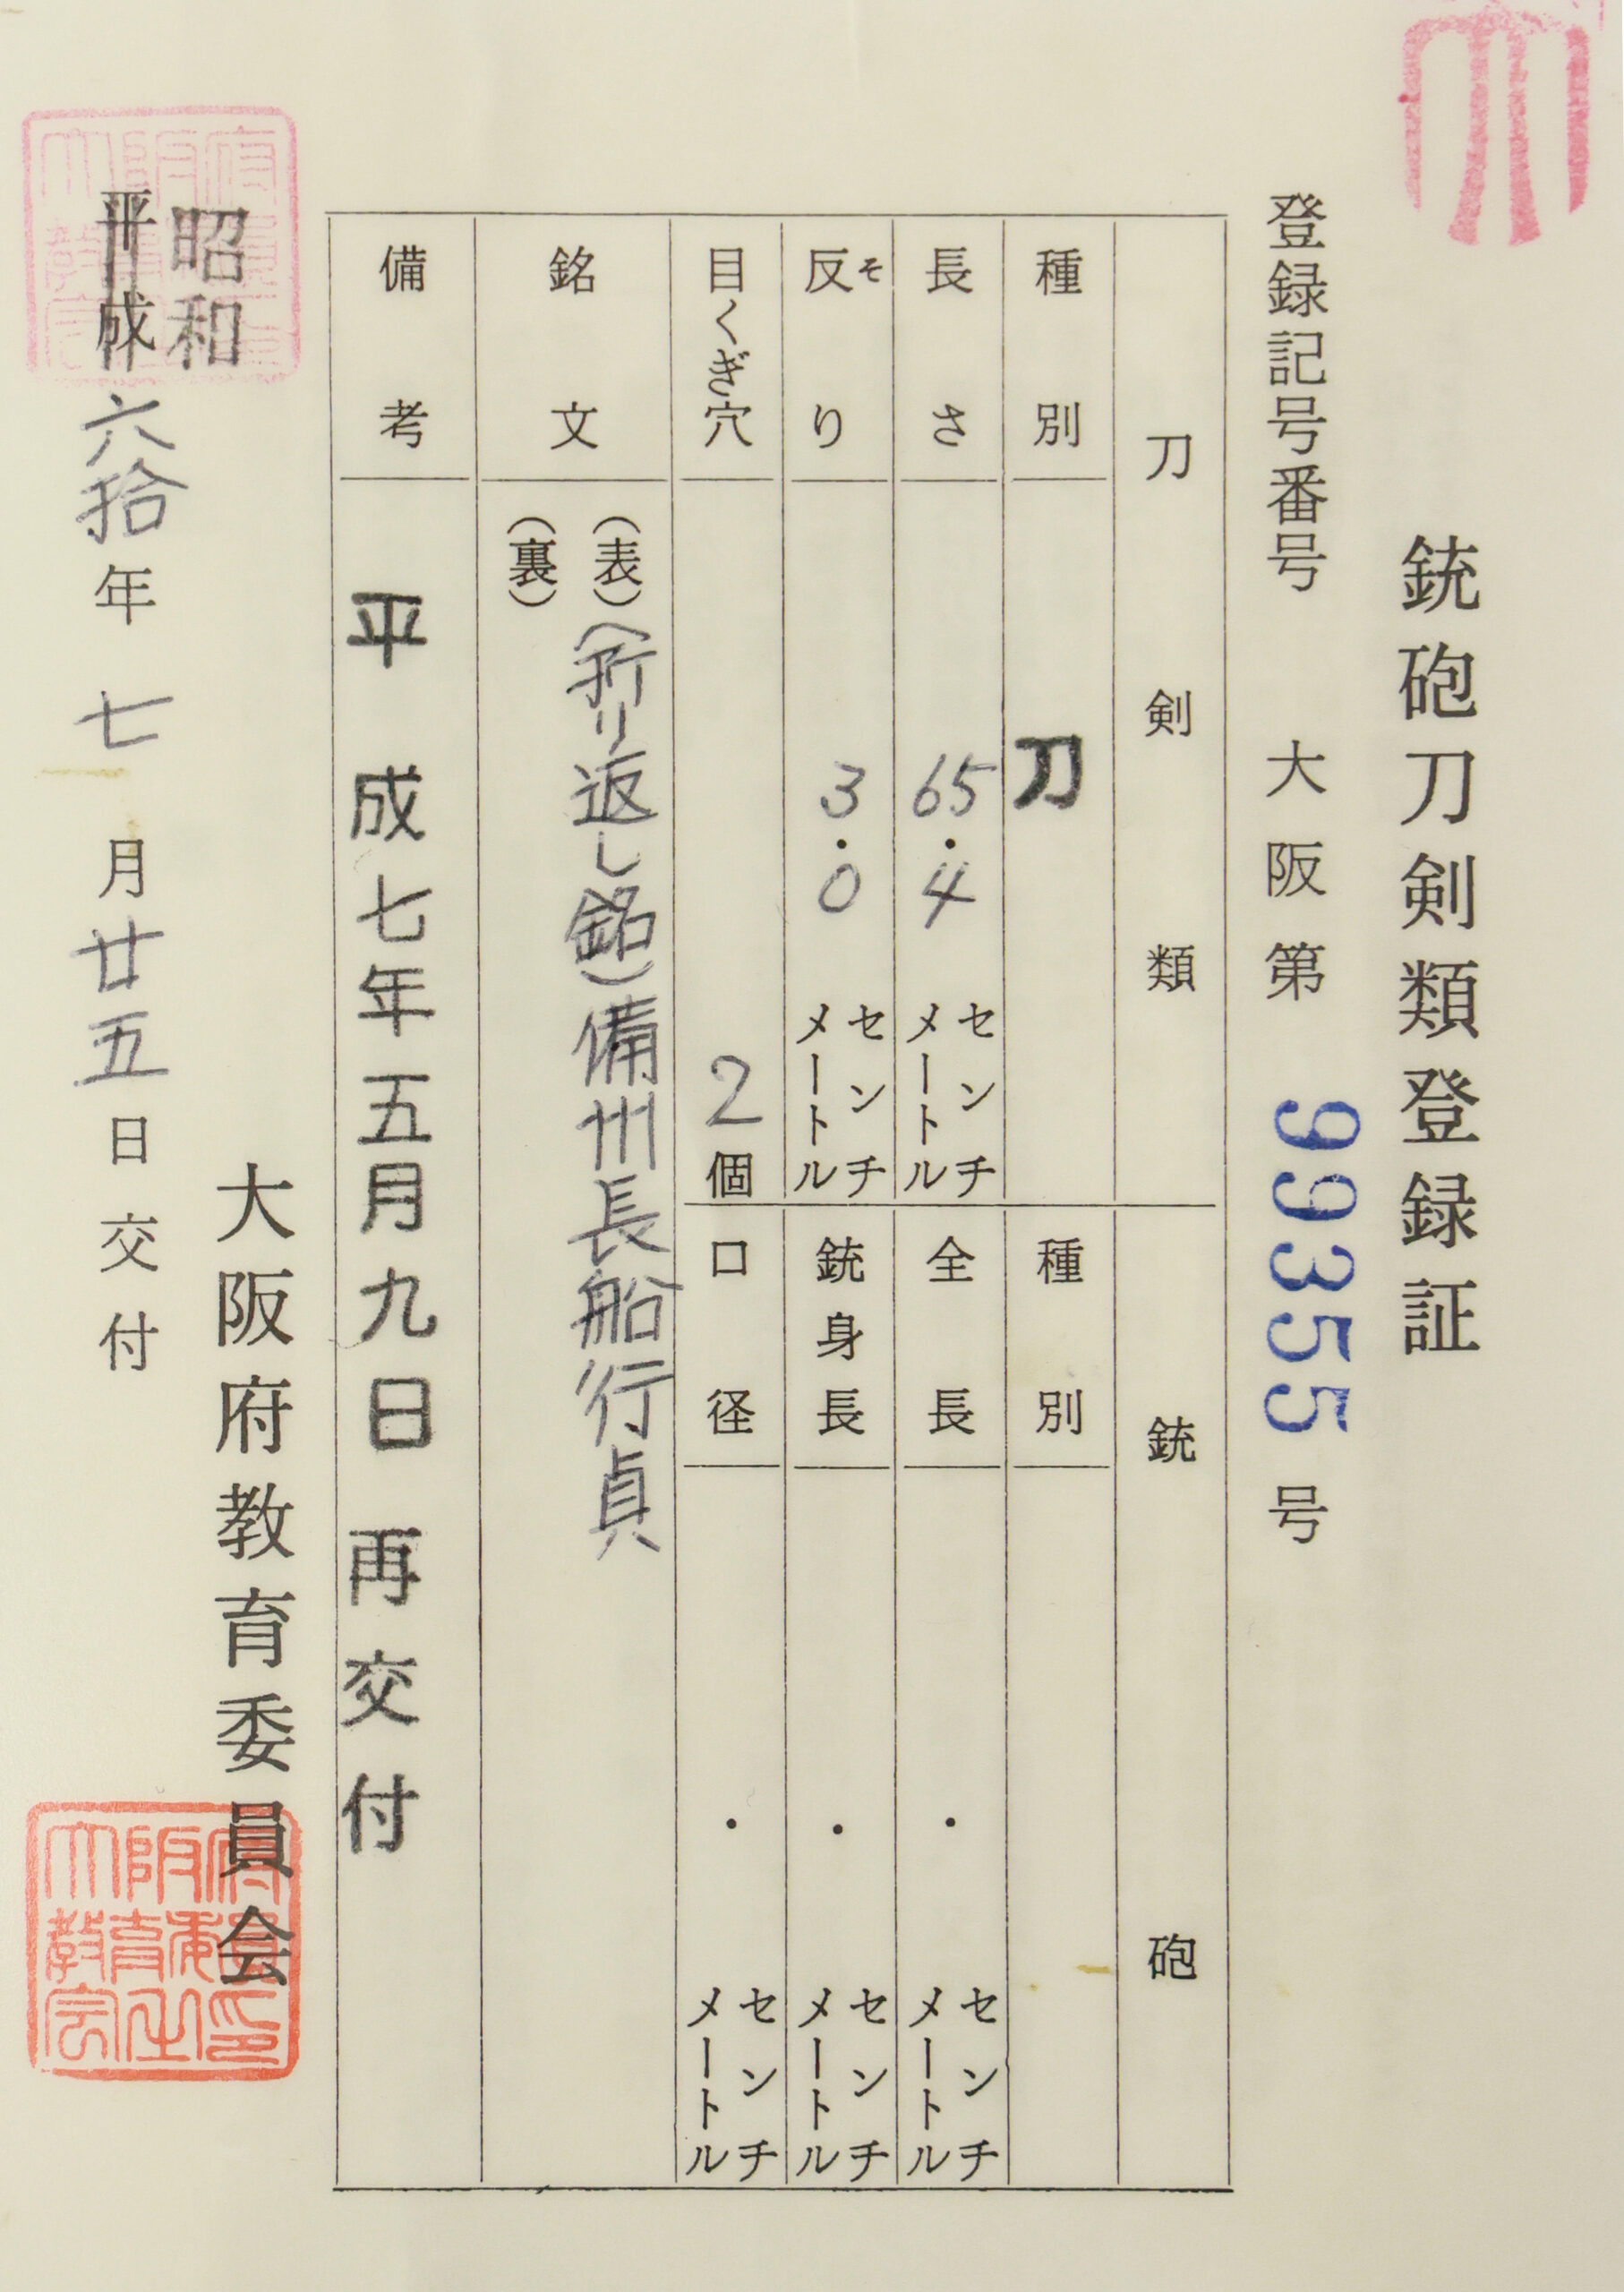 大
銃砲刀剣類登録証
登録記号番号 大阪第 99355 号
刀剣類
種別 刀
長さ 65.4 センチメートル
反り 3.0 センチメートル
そ
目くぎ穴 2個
銃砲
種別
全長 ・ センチメートル
銃身長 ・ センチメートル
口径 ・ センチメートル
銘文 (表)(折り返し銘)備州長船行貞
(裏)
備考 平成七年五月九日再交付
大阪府教育委員会
昭和
平成六拾年七月廿五日交付
大阪府教育委員会之印